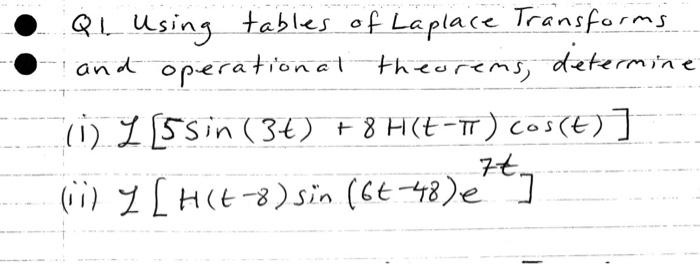 Q1. Using tables of Laplace Transforms
and operational theorems, determine
(i) ℒ[5sin(3t) + 8H(t-π)cos(t)]
(ii) ℒ[H(t-8)sin(6t-48)e^7t]